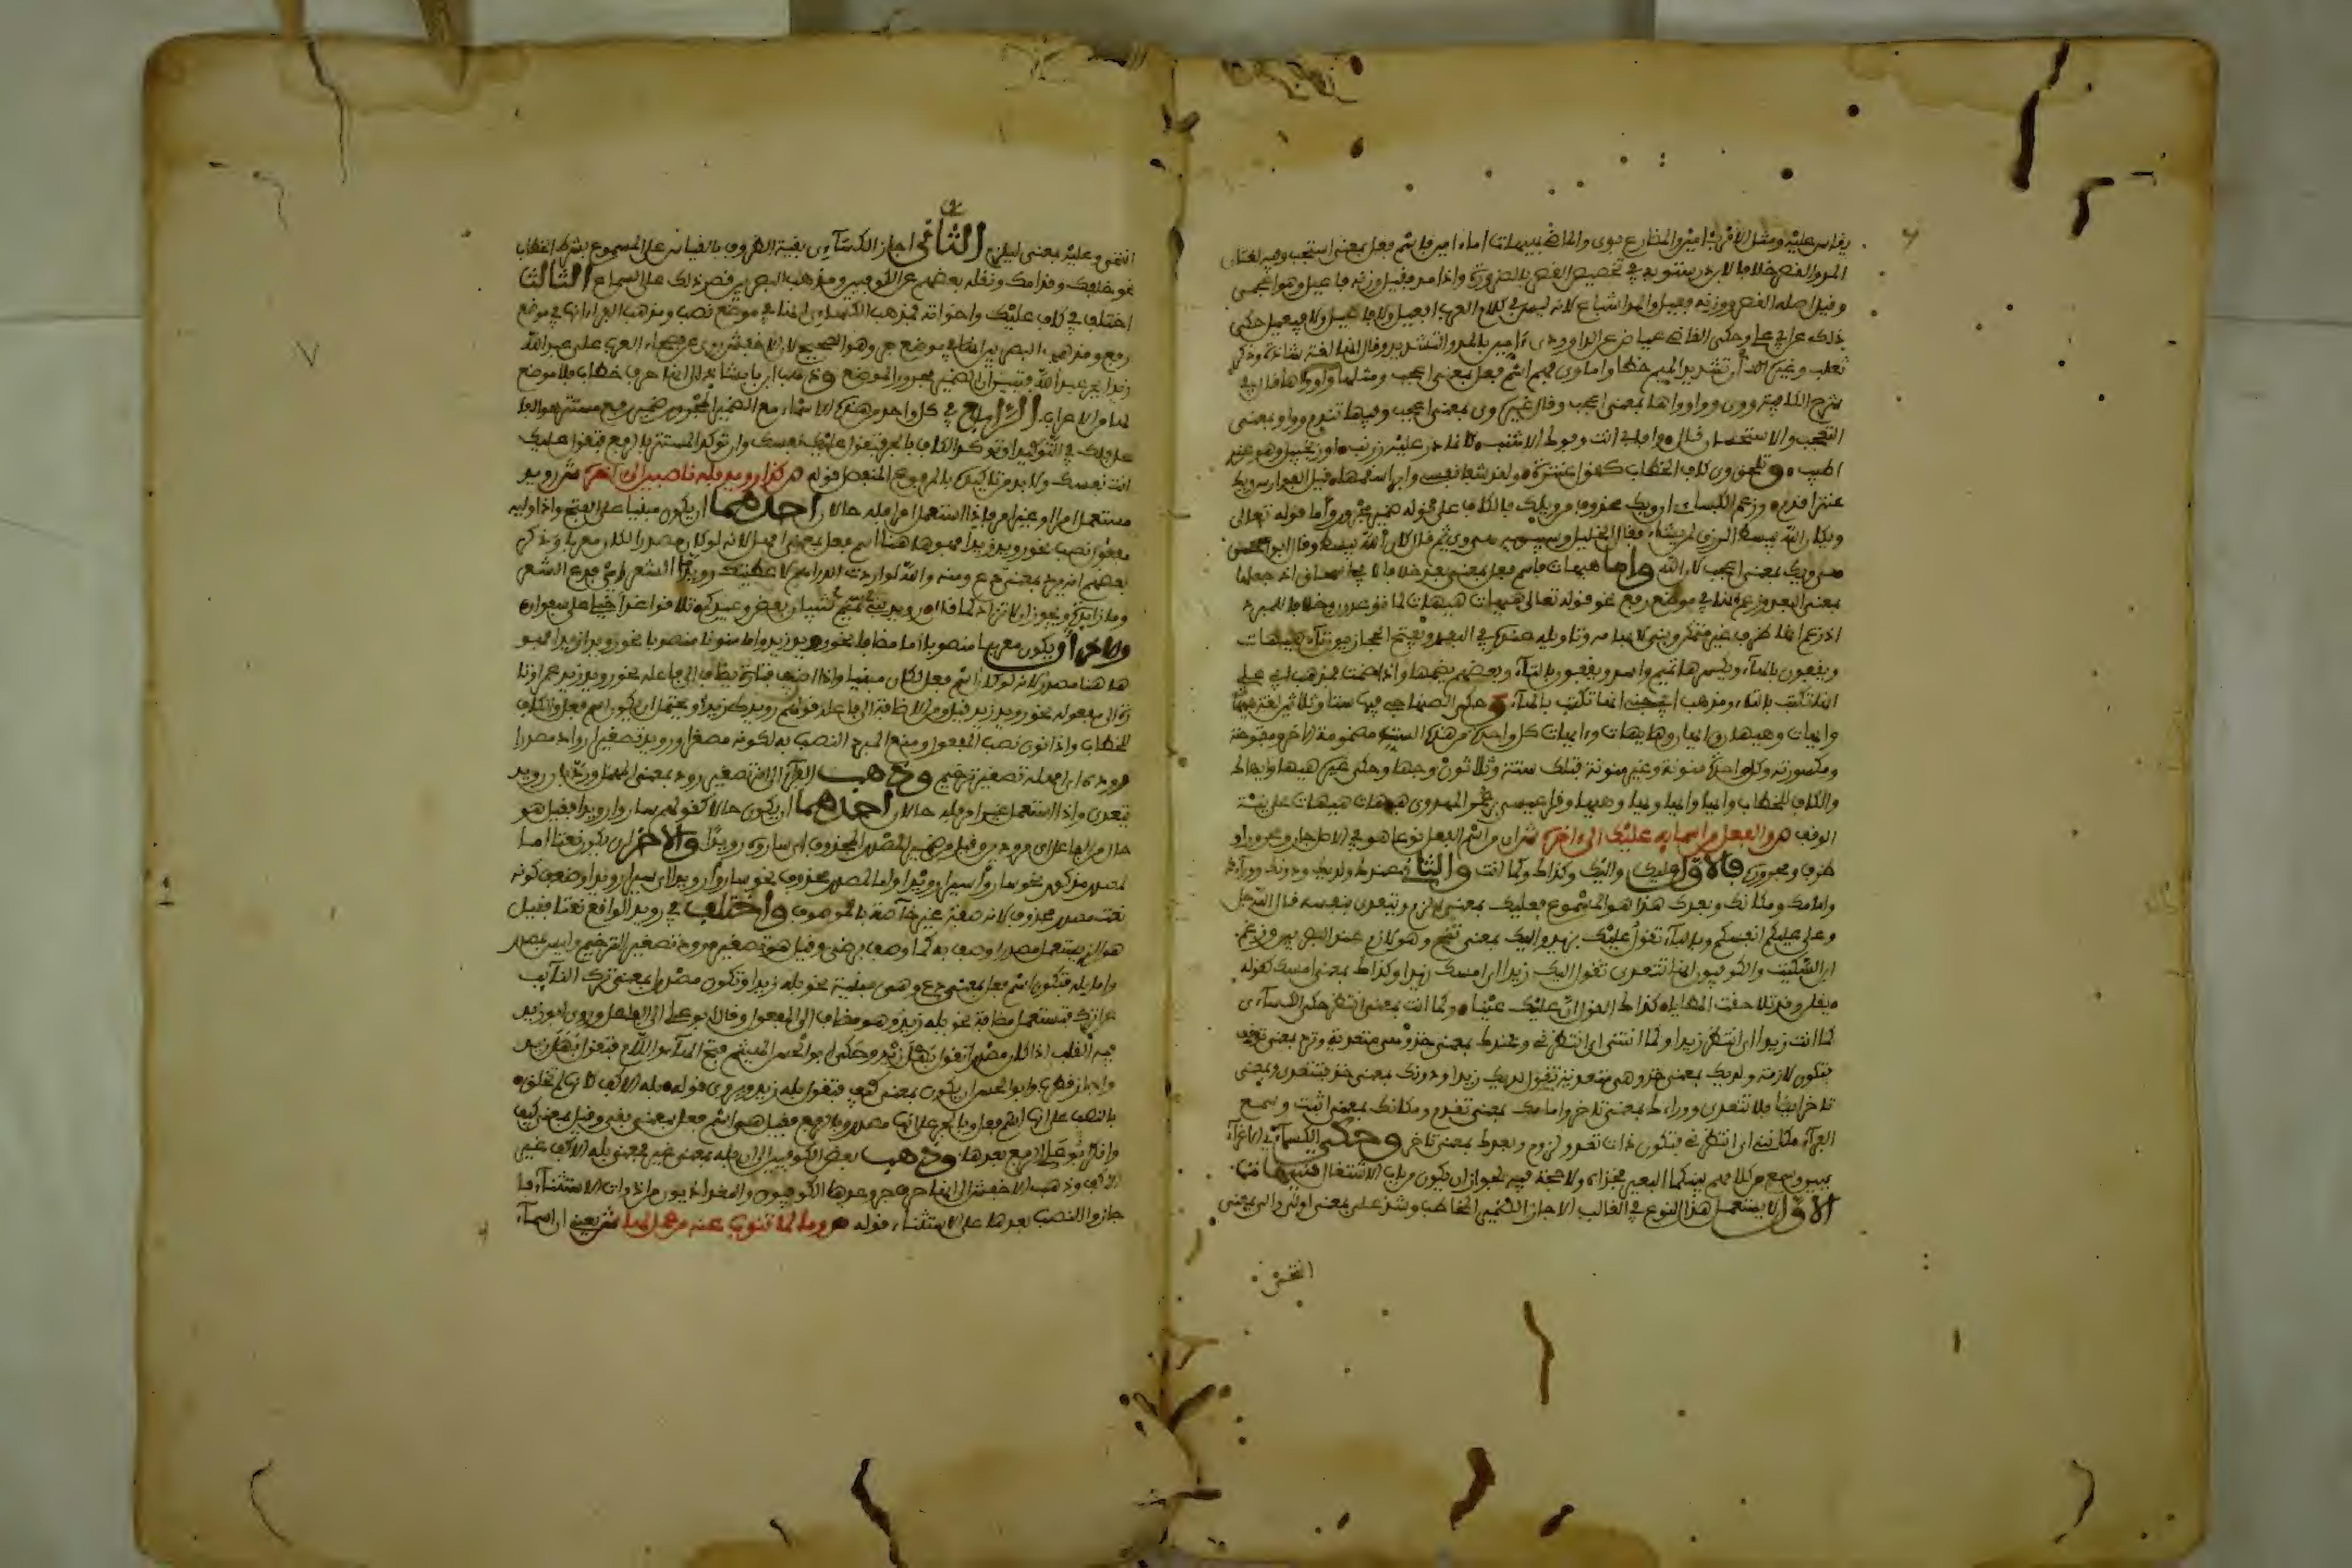 يقاس عليه ومثل الأفرب أمين والمضارع بوى والماضي بهيهات أما أمين فاسم فعل بمعنى استجب وفيه لغتان
المد والقصر خلافا لابن درستويه في تخصيص القصر بالضرورة وإذا مد فقيل وزنه فاعيل وهو أعجمي
وقيل أصله القصر ووزنه فعيل والمد اشباع لأنه ليس في كلام العرب افعيل ولا فاعيل ولا فيعيل حكى
ذلك عن أبي علي وحكى القاضي عياض عن الداودي آمين بالمد والتشديد وقال انها لغة شاذة وذكر
ثعلب وغيره ان تشديد الميم خطأ واما وى فهي اسم فعل بمعنى اعجب ومثلها وا وواها قال في
شرح الكافية ووى ووا وواها بمعنى اعجب وقال غيره وى بمعنى اعجب وفيها تندم ووا وبمعنى
التعجب والاستحسان قال وا بابي انت وفوك الاشنب كانما ذر عليه زرنب او زنجبيل وهو عندي
اطيب وتلحق وى كاف الخطاب كقول عنترة ولقد شفا نفسي وابرا سقمها قيل الفوارس ويك
عنتر اقدم وزعم الكسائي ان ويك محذوف من ويلك فالكاف على قوله ضمير مجرور وأما قوله تعالى
ويكأن الله يبسط الرزق لمن يشاء فقال الخليل وسيبويه هي وى ثم قال كأن الله يبسط وقال ابو الحسن
هي ويك بمعنى اعجب لأن الله وأما هيهات فاسم فعل بمعنى بعد خلافا لأبي اسحاق اذ جعلها
بمعنى البعد وزعم انها في موضع رفع نحو قوله تعالى هيهات هيهات لما توعدون وخلافا للمبرد
اذ زعم انها ظرف غير متمكن وبني لابهامه وتاويله عنده في البعد ويفتح الحجازيون تاء هيهات
ويقفون بالهاء ويكسرها تميم واسد ويقفون بالتاء وبعضهم يضمها واذا ضمت فمذهب ابي علي
انها تكتب بالتاء ومذهب ابن جني انها تكتب بالهاء وحكى الصغاني فيها ستا وثلاثين لغة هيهات
وايهات وهيهان وايهان وهايهات وءايهات كل واحدة من هذه الستة مضمومة الآخر ومفتوحة
ومكسورته وكل واحدة منونة وغير منونة فتلك ستة وثلاثون وجها وحكى غيره هيهاك وايهاك
والكاف للخطاب وايها وايها وهيها وقرأ عيسى بن عمر الهمداني هيهات هيهات على نية
الوقف هـ والفعل من اسمايه عليك الى اخره ش ان من اسم الفعل نوعا هو في الاصل جار ومجرور او
ظرف ومجروره فالأول عليك واليك وكذاك وكما انت والثاني عندك ولديك ودونك ووراءك
وامامك ومكانك وبعدك هذا هو المسموع فعليك بمعنى الزم ويتعدى بنفسه قال الله عز وجل
عليكم انفسكم وبالباء تقول عليك بزيد واليك بمعنى تنح وهو لازم عند البصريين وزعم
ابن السكيت والكوفيون انها تتعدى تقول اليك زيدا اي امسك زيدا وكذاك بمعنى امسك كقوله
يقلن وقد تلاحقت المطايا كذاك القول ان عليك عينا وكما انت بمعنى انتظر حكى الكسائي
كما انت زيدا اي انتظر زيدا وكما انتني اي انتظرني وعندك بمعنى خذ وهي متعدية وترد بمعنى توقف
فتكون لازمة ولديك بمعنى خذ وهي متعدية تقول لديك زيدا ودونك بمعنى خذ فتتعدى وبمعنى
تأخر ايضا فلا تتعدى ووراءك بمعنى تأخر وامامك بمعنى تقدم ومكانك بمعنى اثبت وسمع
الفراء مكانني اي انتظرني فتكون ذات تعد ولزوم وبعدك بمعنى تأخر وحكى الكسائي في الاغراء
بين وسمع من كلامهم بينكما البعير فخذاه ولا حجة فيه لجواز ان يكون من باب الاشتغال تنبيهات
الأول لا يستعمل هذا النوع في الغالب الا جارا لضمير المخاطب وشذ على بمعنى اولني والي بمعنى
اتنحى
اتنحى وعليه بمعنى ليلزم الثاني اجاز الكسائي بقية الظروف بالقياس على المسموع بشرط الخطاب
نحو خلفك وقدامك ونقله بعضهم عن الكوفيين ومذهب البصريين قصر ذلك على السماع الثالث
اختلف في كاف عليك واخواته فمذهب الكسائي انها في موضع نصب ومذهب الفراء انها في موضع
رفع ومذهب البصريين انها في موضع جر وهو الصحيح لأن الأخفش روى عن فصحاء العرب على عبد الله
زيدا بجر عبد الله فتبين ان الضمير مجرور الموضع وذهب ابن بابشاذ الى انها حرف خطاب فلا موضع
لها من الاعراب الرابع في كل واحد من هذه الاسماء مع الضمير المجرور ضمير رفع مستتر هو الفاعل
فلك في التوكيد ان توكد الكاف بالجر فتقول عليك نفسك وان توكد المستتر بالرفع فتقول عليك
انت نفسك ولا بد من تاكيده بالمرفوع المنفصل قوله هـ كذا رويد بله ناصبين الى اخره ش رويد
مستعمل امرا وغير امر فاذا استعمل امرا فله حالان احدهما ان يكون مبنيا على الفتح واذا وليه
مفعول نصب نحو رويد زيدا فهو هنا اسم فعل بمعنى امهل لانه لو كان مصدرا لكان معربا وذكر
بعضهم انه يرد بمعنى دع ومنه والله لو اردت الدراهم لأعطيتك رويدا الشعر اي فدع الشعر
والاخر ان يكون معربا منصوبا اما مضافا نحو رويد زيد واما منونا منصوبا نحو رويدا زيدا فهو
هاهنا مصدر لانه لو كان اسم فعل لكان مبنيا واذا اضيف فتارة يضاف الى فاعله نحو رويد زيد عمرا وتا
رة الى مفعوله نحو رويد زيد قيل ومن الاضافة الى فاعله قولهم رويدك زيدا ويحتمل ان يكون اسم فعل والكاف
للخطاب واذا نون نصب المفعول ومنع المبرد النصب به لكونه مصغرا ورويد تصغير ارواد مصدر
ارود اي امهل تصغير ترخيم وذهب الفراء الى انه تصغير رود بمعنى المهل ورد بان رويد
يتعدى واذا استعمل غير امر فله حالان احدهما ان يكون حالا كقولهم ساروا رويدا فقيل هو
حال من الفاعل اي مرودين وقيل من ضمير المصدر المحذوف اي ساروه رويدا والآخر ان يكون نعتا اما
لمصدر مذكور نحو ساروا سيرا رويدا واما لمصدر محذوف نحو ساروا رويدا اي سيرا رويدا وضعف كونه
نعت مصدر محذوف لانه صفة غير خاصة بالموصوف واختلف في رويد الواقع نعتا فقيل
هو الذي يستعمل مصدرا وصف به كما وصف برضى وقيل هو تصغير مرود تصغير الترخيم وليس بمصدر
واما بله فتكون اسم فعل بمعنى دع وهي مبنية نحو بله زيدا وتكون مصدرا بمعنى ترك النائب
عن اترك فتستعمل مضافة نحو بله زيد وهو مضاف الى المفعول وقال ابو علي الى الفاعل وروى ابو زيد
فيه القلب اذا كان مصدرا تقول بهل زيد وحكى ابو الحسن الهيثم فتح الهاء واللام فتقول بهل زيد
واجاز قطرب وابو الحسن ان يكون بمعنى كيف فتقول بله زيد ويروى قوله بله الاكف كانها لم تخلق
بالنصب على انها اسم فعل وبالجر على انها مصدر وبالرفع فقيل هي اسم فعل بمعنى بقي وقيل بمعنى كيف
وانكر ابو علي الرفع بعدها وذهب بعض الكوفيين الى ان بله بمعنى غير فمعنى بله الاكف غير
الاكف وذهب الاخفش الى انها حرف جر وعدها الكوفيون والبغداديون من ادوات الاستثناء فا
جازوا النصب بعدها على الاستثناء قوله هـ وما لما تنوب عنه من عمل لها ش يعني ان اسماء